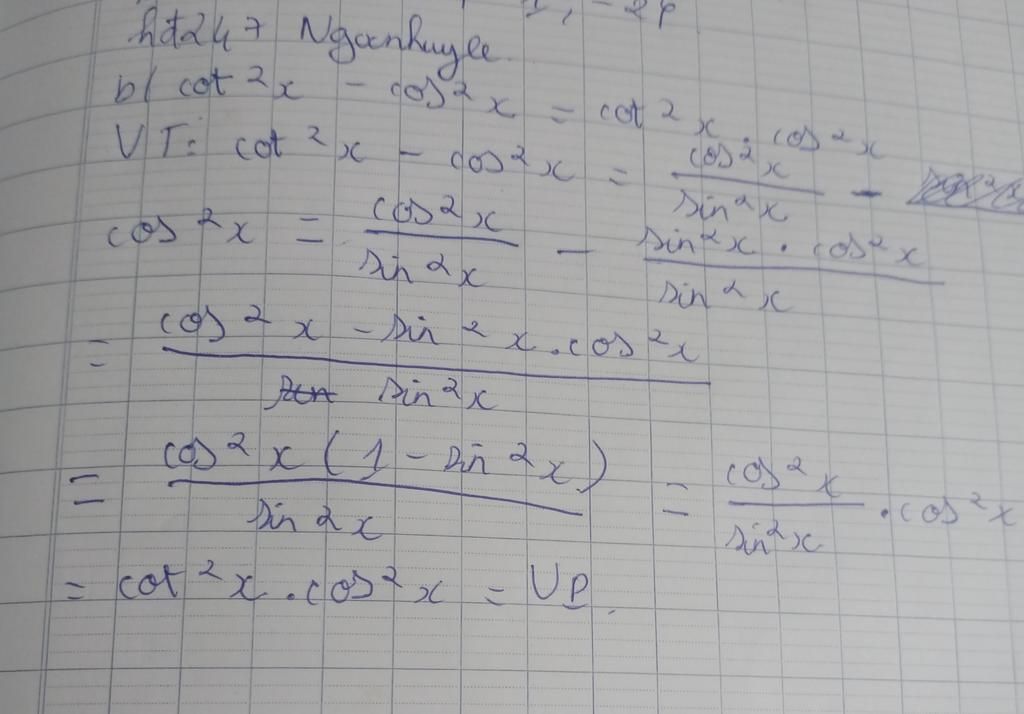 hd247 Nganhuyee
b/ cot²x - cos²x = cot²x . cos²x
VT: cot²x - cos²x = cos²x / sin²x -
cos²x = cos²x / sin²x - sin²x . cos²x / sin²x
= cos²x - sin²x . cos²x / sin²x
= cos²x (1 - sin²x) / sin²x = cos²x / sin²x . cos²x
= cot²x . cos²x = VP.